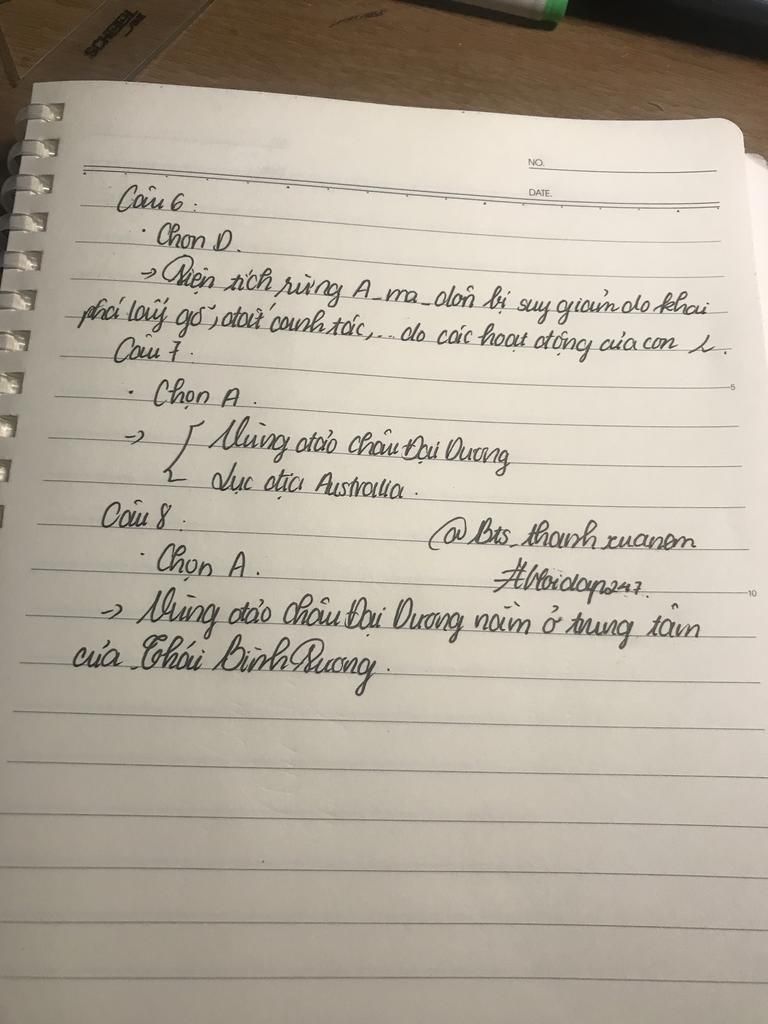 NO.
DATE.
Câu 6:
· Chọn D.
→ Diện tích rừng A_ma_dôn bị suy giảm do khai
phá lấy gỗ, đất canh tác,... do các hoạt động của con
Câu 7.
· Chọn A.
→ { Vùng đảo châu Đại Dương
Lục địa Australia.
Câu 8:
@Bts_thanhxuanem
· Chọn A.
#Hoidap247.
→ Vùng đảo châu Đại Dương nằm ở trung tâm
của Thái Bình Dương.
5
10